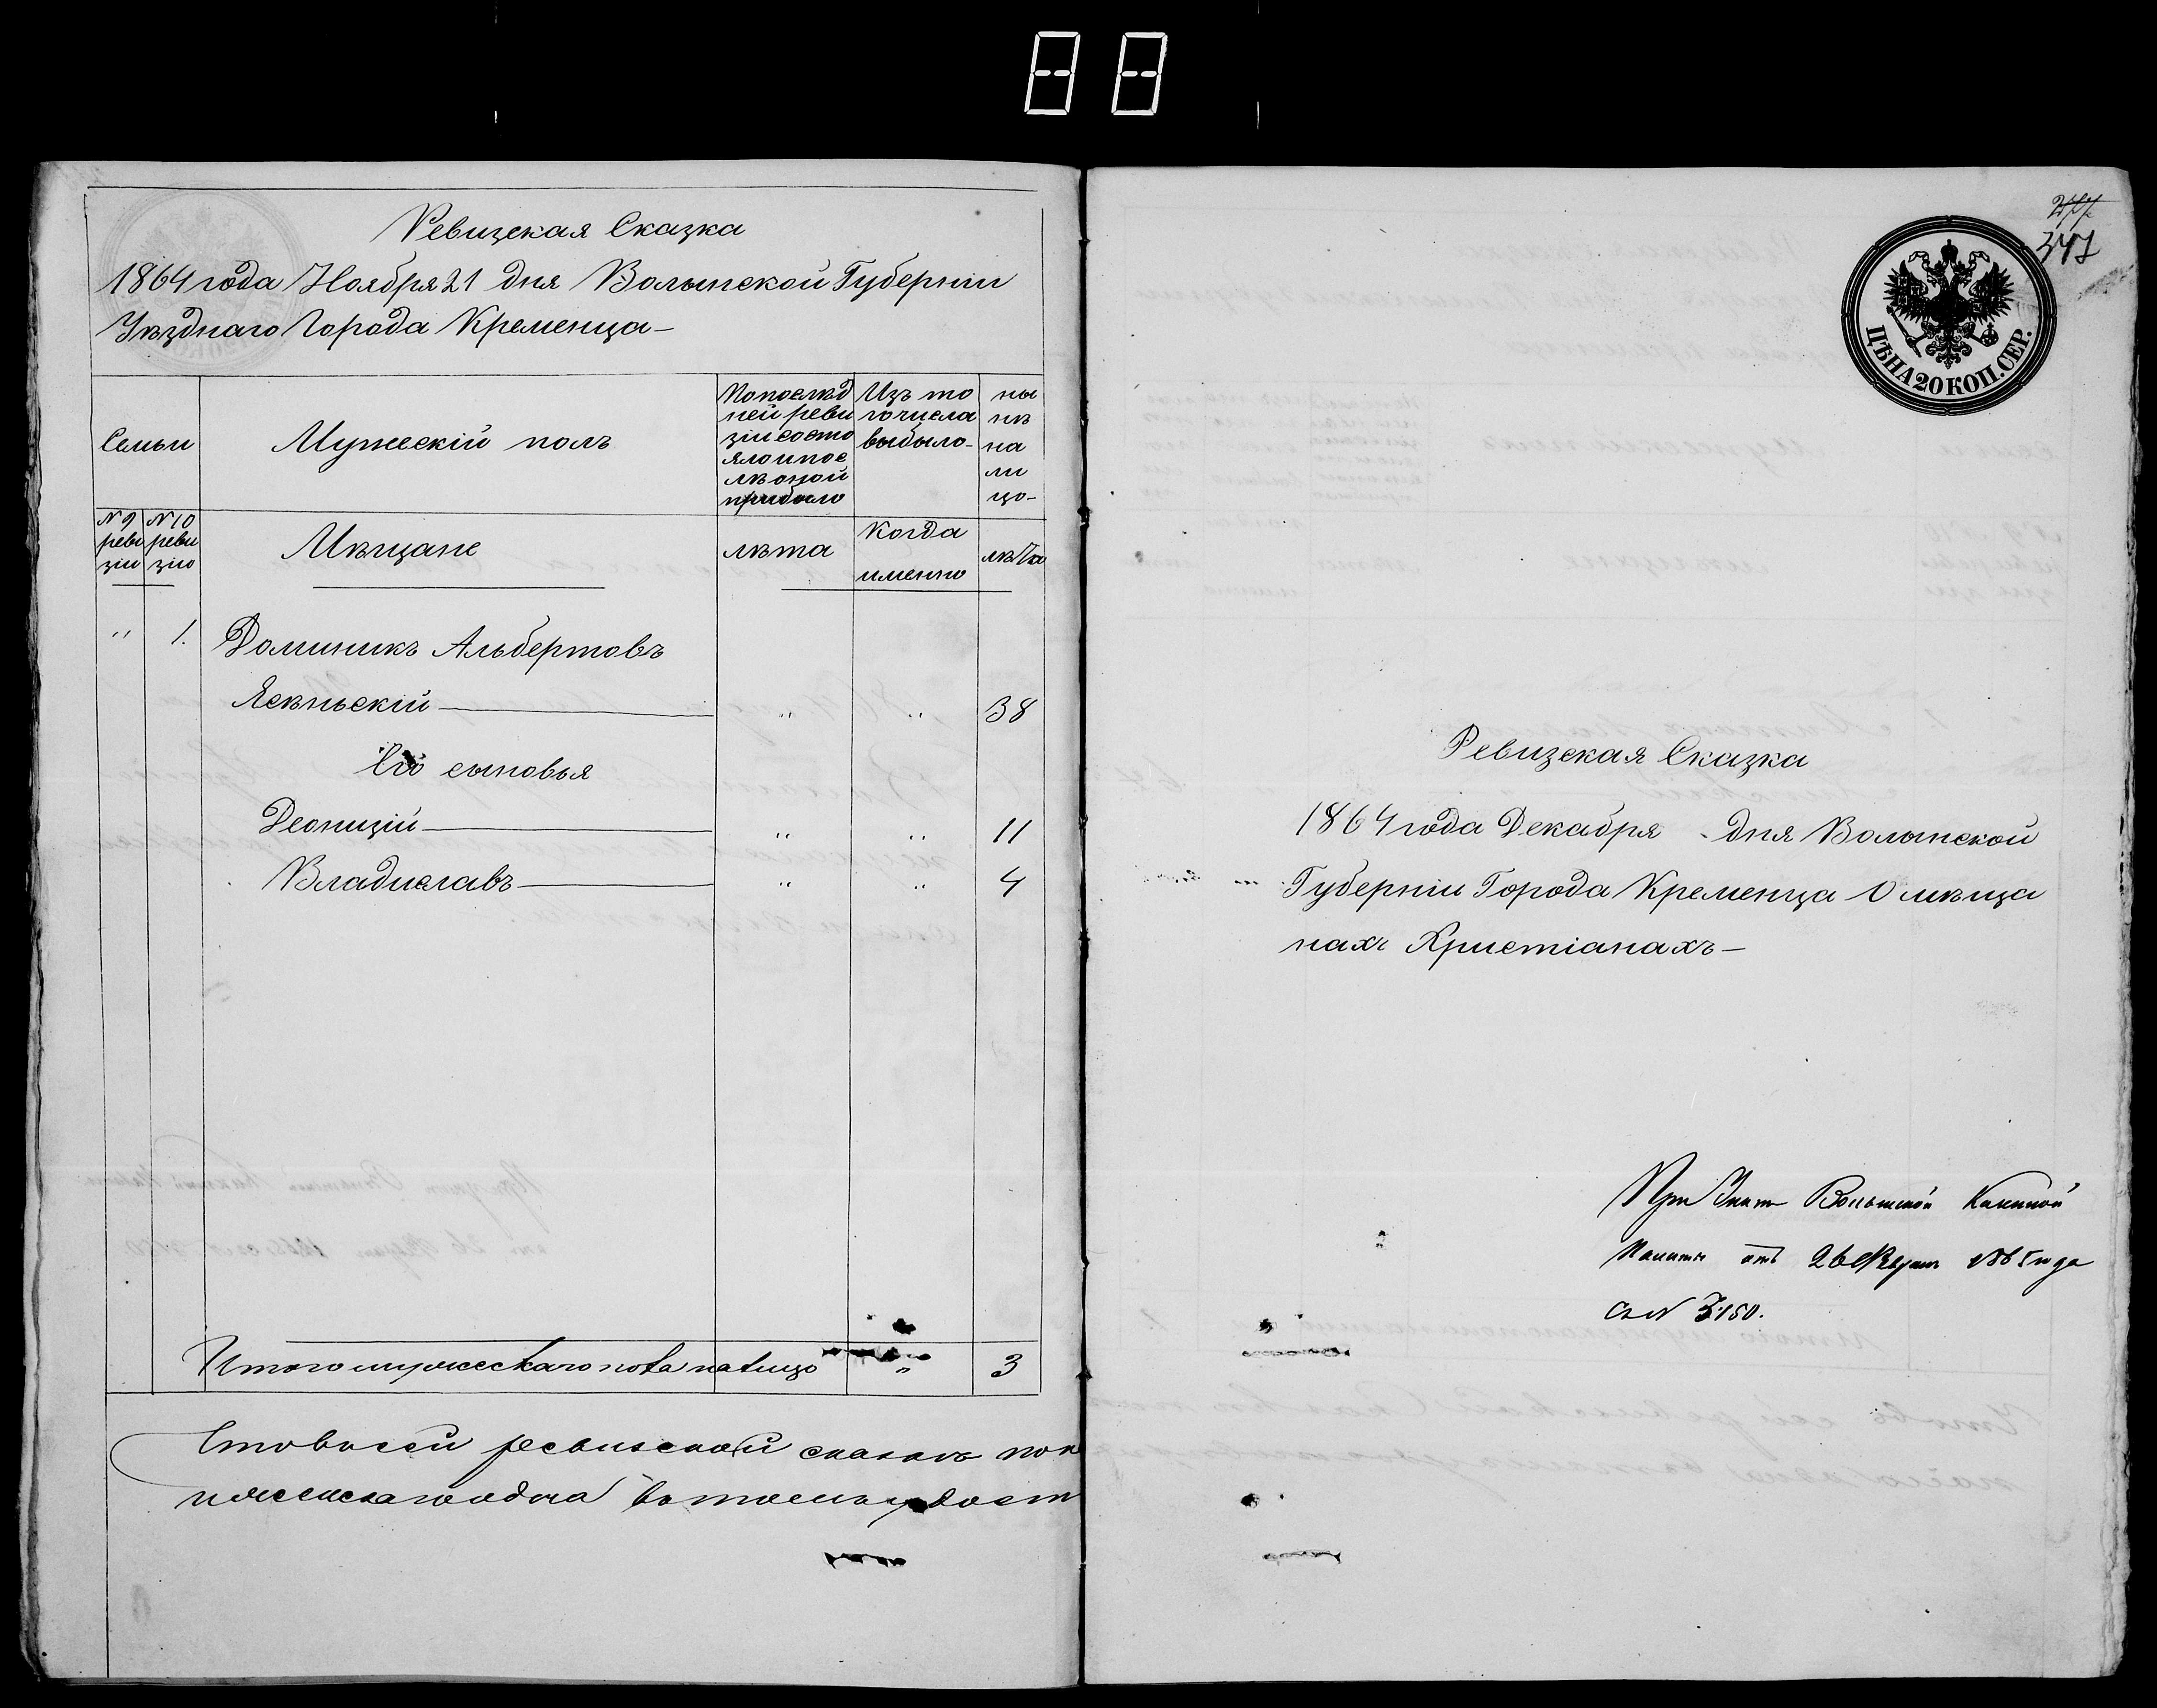 Ревизская Сказка
1864 года Ноября 21 дня Волынской Губерніи
Уѣзднаго Города Кременца —
Семьи
Мужескій полъ
По послѣд
ней реви
зіи состо
яло и пос
лѣ оной
прибыло
Изъ то
го числа
выбыло —
ны
нѣ
на
ли
цо —
N 9
реви
зіи
N 10
реви
зіи
Мѣщане
лѣта
Когда
именно
лѣта
" 1. Доминикъ Альбертовъ
Ясѣньскій — " " 38
Его сыновья
Деонизій — " " 11
Владиславъ — " " 4
Итого мужескаго пола на лицо " 3
Что въ сей ревизской сказкѣ пок
въ томъ удост
277
347
ЦѢНА 20 КОП. СЕР.
Ревизская Сказка
1864 года Декабря - дня Волынской
Губерніи Города Кременца О мѣща
нахъ Христіанахъ —
При Указѣ Волынской Казенной
Палаты отъ 26 Февраля 1865 года
за N 3150.